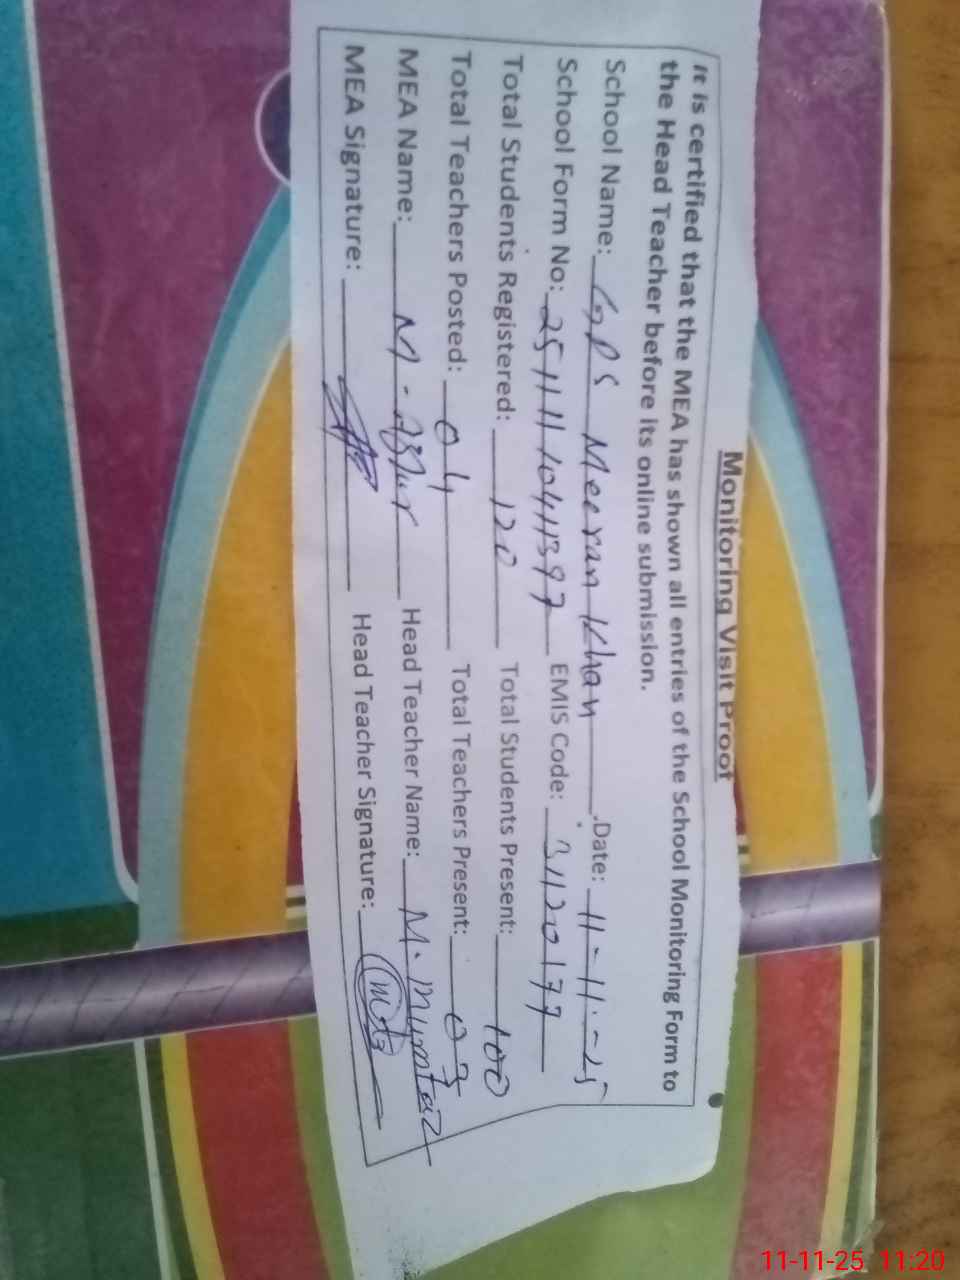 Monitoring Visit Proof
It is certified that the MEA has shown all entries of the School Monitoring Form to
the Head Teacher before its online submission.
School Name: GPS Meeran Khan .Date: 11-11-25
School Form No: 2511110411397 EMIS Code: 31120177
Total Students Registered: 120 Total Students Present: 100
Total Teachers Posted: 04 Total Teachers Present: 03
MEA Name: M. Head Teacher Name: M. Mumtaz
MEA Signature: Head Teacher Signature:
11-11-25 11:20